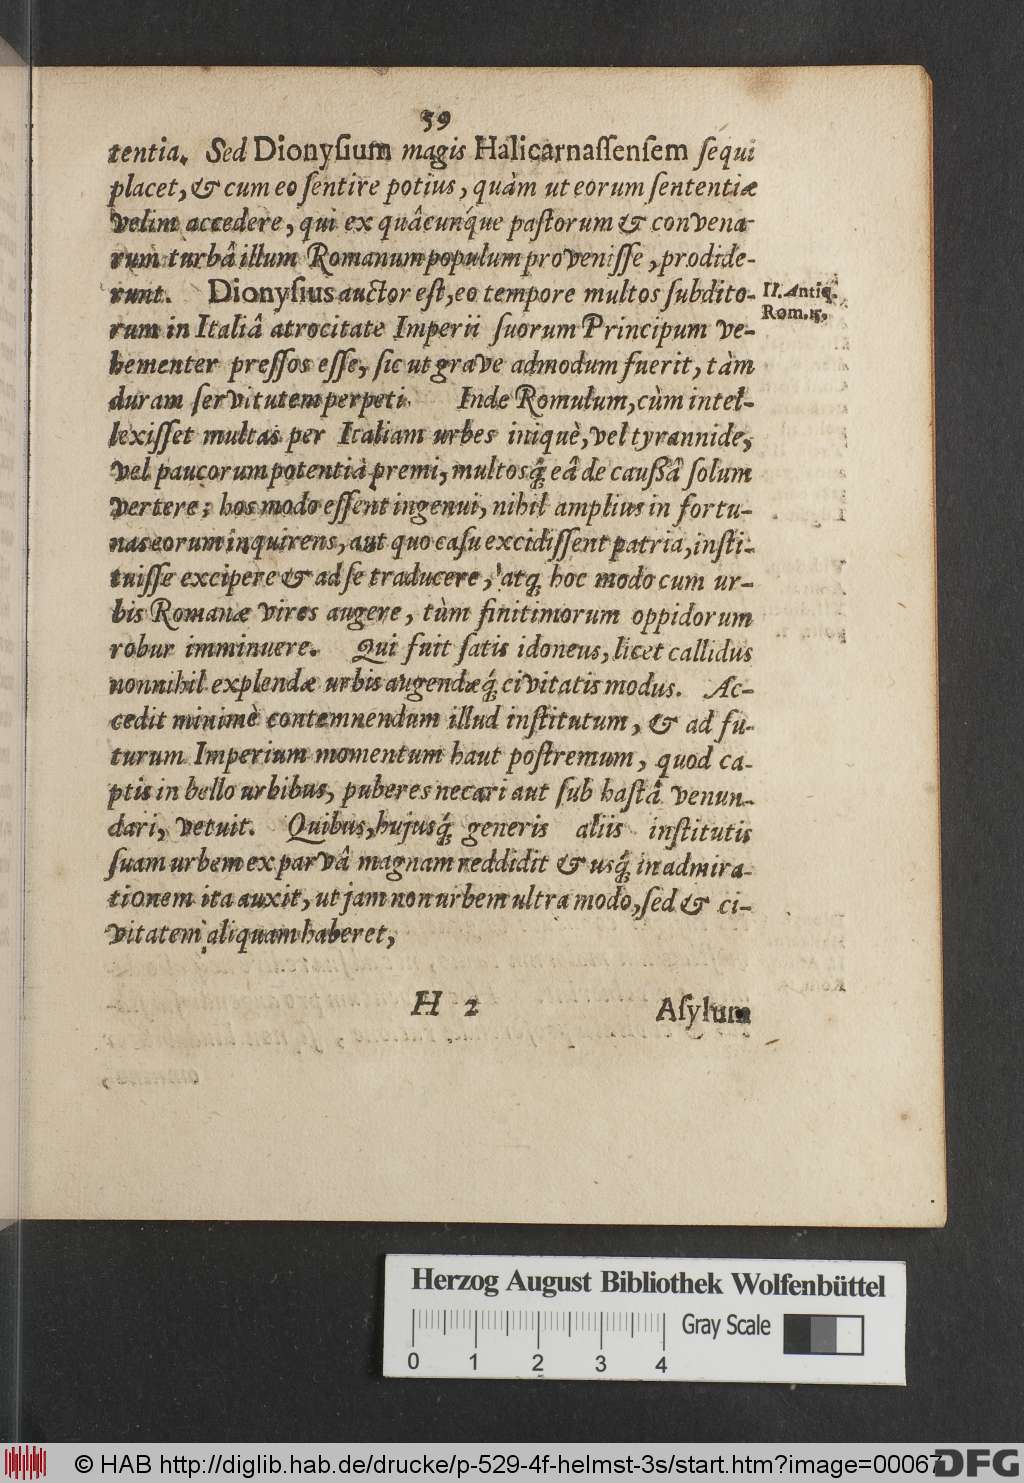 59
tentia. Sed Dionyſium magis Halicarnaſſenſem ſequi
placet, & cum eo ſentire potius, quàm ut eorum ſententiæ
velim accedere, qui ex quâcunq́ue paſtorum & convena-
rum turbâ illum Romanum populum proveniſſe, prodide-
runt. Dionyſius auctor eſt, eo tempore multos ſubdito-
II. Antiq.
Rom. 15.
rum in Italiâ atrocitate Imperii ſuorum Principum ve-
hementer preſſos eſſe, ſic ut grave admodum fuerit, tàm
duram ſervitutem perpeti. Inde Romulum, cùm intel-
lexiſſet multas per Italiam urbes iniquè, vel tyrannide,
vel paucorum potentiâ premi, multosq́; eâ de cauſſâ ſolum
vertere; hos modo eſſent ingenui, nihil amplius in fortu-
nas eorum inquirens, aut quo caſu excidiſſent patria, inſti-
tuiſſe excipere & ad ſe traducere, atq; hoc modo cum ur-
bis Romanæ vires augere, tùm finitimorum oppidorum
robur imminuere. Qui fuit ſatis idoneus, licet callidus
nonnihil explendæ urbis augendæq́; civitatis modus. Ac-
cedit minimè contemnendum illud inſtitutum, & ad fu-
turum Imperium momentum haut poſtremum, quod ca-
ptis in bello urbibus, puberes necari aut ſub haſtâ venun-
dari, vetuit. Quibus, hujusq́; generis aliis inſtitutis
ſuam urbem ex parvâ magnam reddidit & usq́; in admira-
tionem ita auxit, ut jam non urbem ultra modo, ſed & ci-
vitatem aliquam haberet,
H 2 Aſylum
Herzog August Bibliothek Wolfenbüttel
Gray Scale
0 1 2 3 4
© HAB http://diglib.hab.de/drucke/p-529-4f-helmst-3s/start.htm?image=00067
DFG